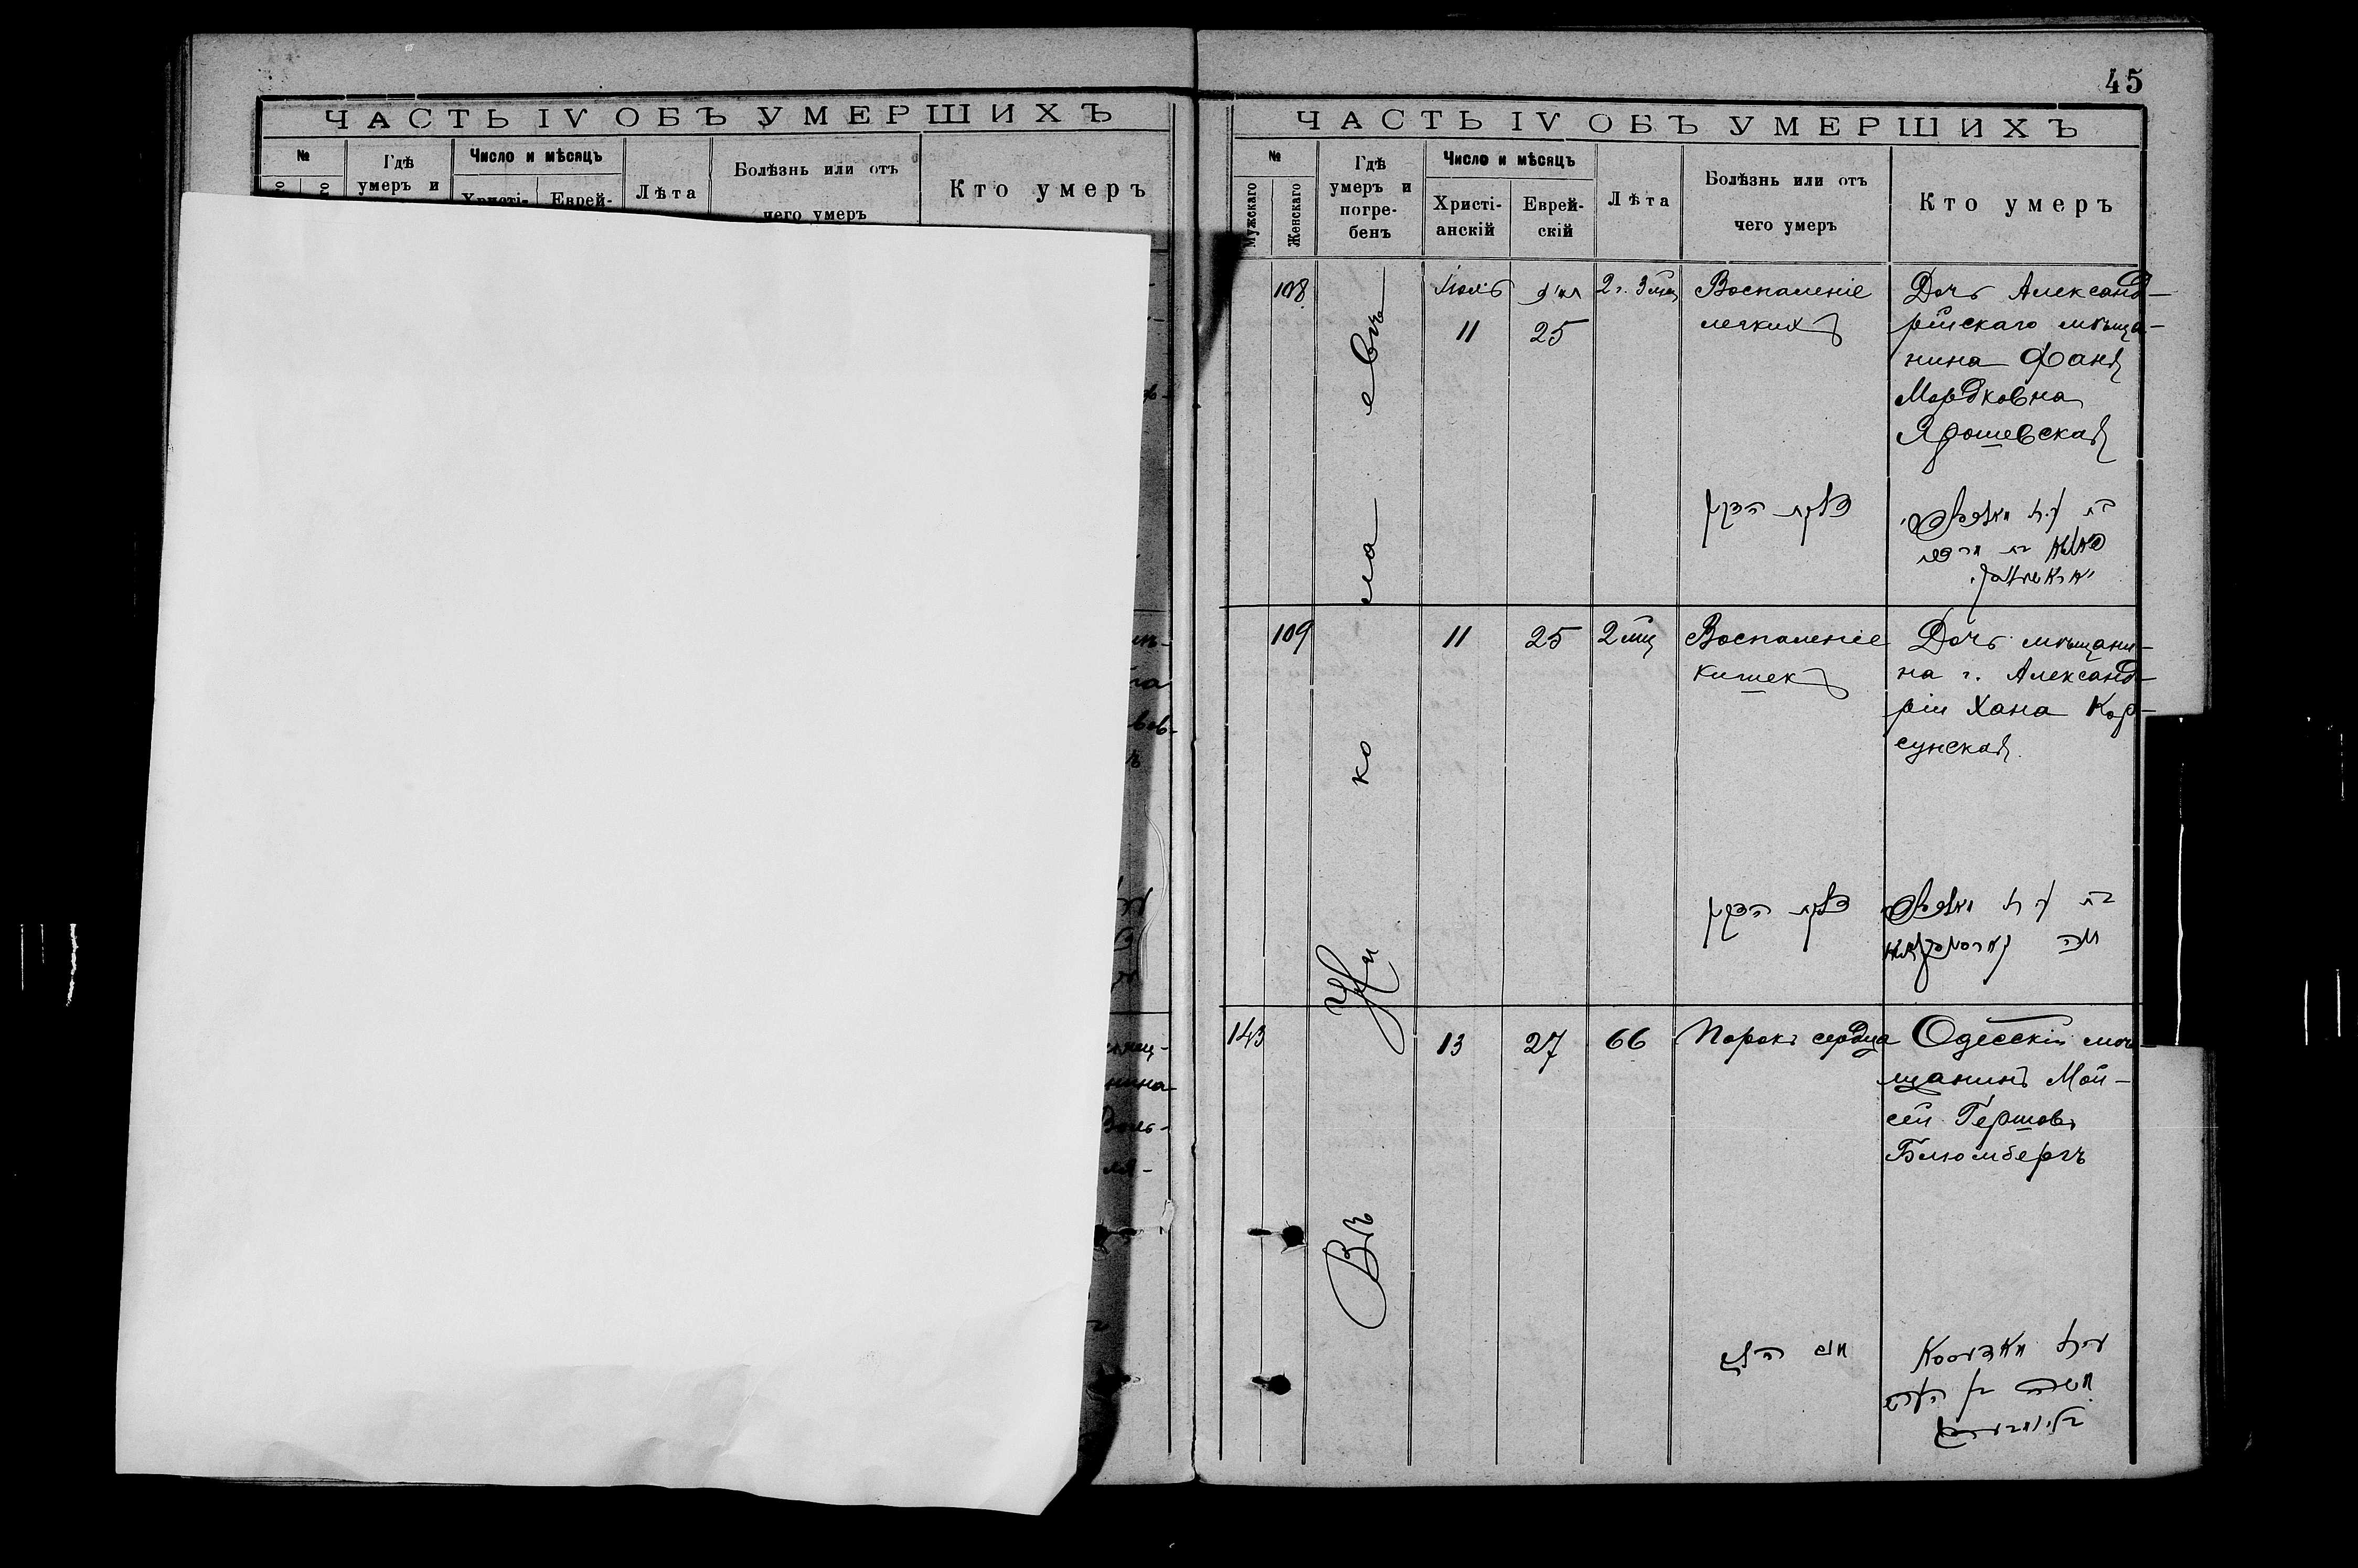 ЧАСТЬ IV ОБЪ УМЕРШИХЪ
№
Гдѣ
умеръ и
Число и мѣсяцъ
Христі-
Еврей-
Лѣта
Болѣзнь или отъ
чего умеръ
Кто умеръ
45
ЧАСТЬ IV ОБЪ УМЕРШИХЪ
№
Мужскаго
Женскаго
Гдѣ
умеръ и
погре-
бенъ
Число и мѣсяцъ
Христі-
анскій
Еврей-
скій
Лѣта
Болѣзнь или отъ
чего умеръ
Кто умеръ
Въ Николаевѣ
108
Іюль
11
25
2 г. 3 мѣц
Воспаленіе
легкихъ
Дочь Александ-
рійскаго мѣща-
нина Фаня
Мордковна
Ярошевская
109
11
25
2 мц
Воспаленіе
кишекъ
Дочь мѣщани-
на г. Александ-
ріи Хана Кор-
сунская.
143
13
27
66
Порокъ сердца
Одесскій мѣ-
щанинъ Мой-
сей Гершовъ
Блюмбергъ